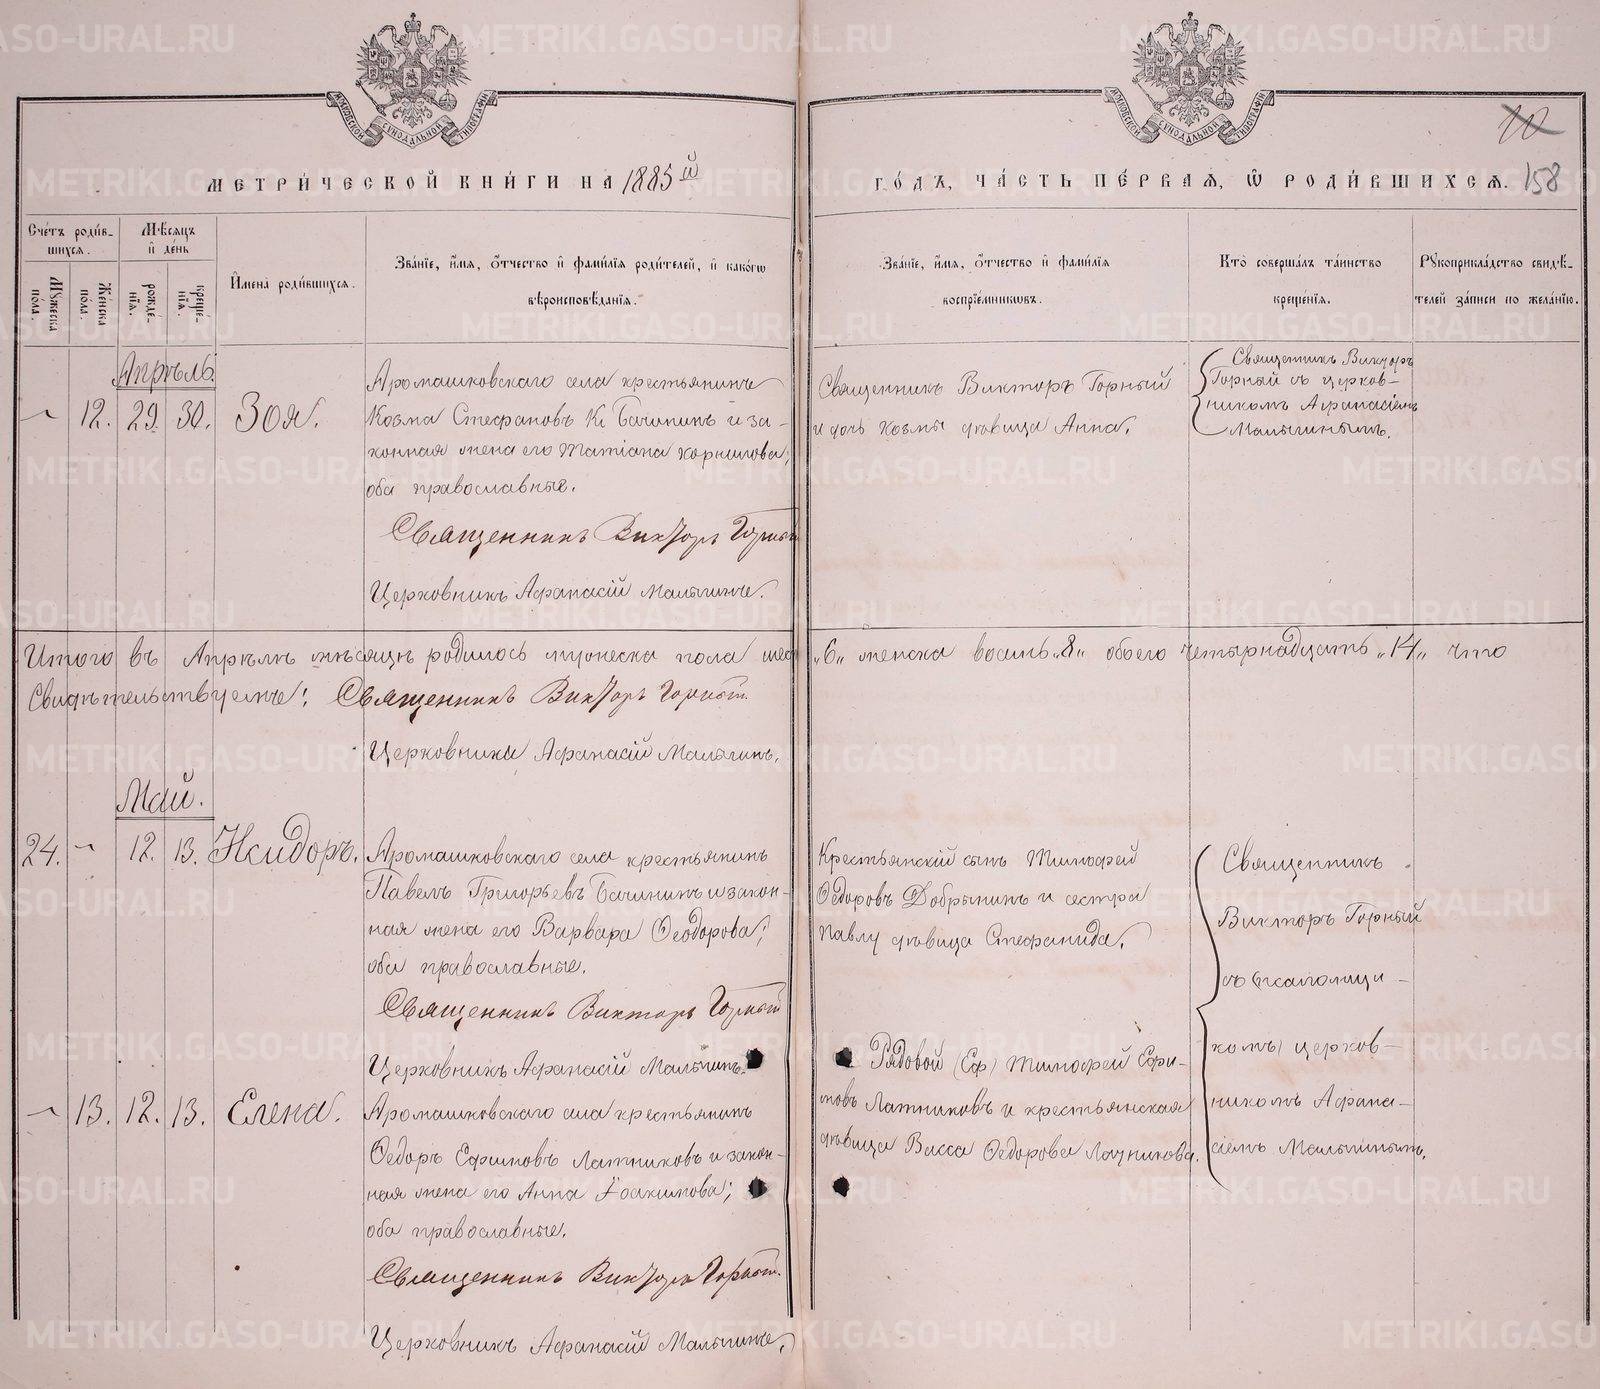 МОСКОВСКОЙ СѴНОДАЛЬНОЙ ТИПОГРАФІИ
МОСКОВСКОЙ СѴНОДАЛЬНОЙ ТИПОГРАФІИ
10
МЕТРИ́ЧЕСКОЙ КНИ́ГИ НА 1885й
ГО́ДЪ, ЧА́СТЬ ПЕ́РВАЯ, Ѽ РОДИ́ВШИХСЯ. 158
Сче́тъ роди́в-
шихся.
Мꙋ́жеска по́ла.
Же́нска по́ла.
Мѣ́сяцъ
и҆ де́нь
рожде́-
нїя.
креще́-
нїя.
И҆мена̀ роди́вшихся.
Зва́нїе, и҆́мя, ѻ҆́тчество и҆ фами́лїя роди́телей, и҆ како́гѡ
вѣроисповѣ́данїя.
Зва́нїе, и҆́мя, ѻ҆́тчество и҆ фами́лїя
воспрїе́мникѡвъ.
Кто̀ соверша́лъ та́инство
креще́нїя.
Рꙋкоприкла́дство свидѣ́-
телей за́писи по жела́нїю.
Апрѣль
12. 29. 30. Зоя.
Аромашковскаго села крестьянинъ
Козма Стефановъ К Бачининъ и за-
конная жена его Татіана Корнилова;
оба православные.
Священникъ Викторъ Горный
Церковникъ Афанасій Малыгинъ.
Священникъ Викторъ Горный
и дочь Козмы дѣвица Анна.
Священникъ Викторъ
Горный съ церков-
никомъ Афанасіемъ
Малыгинымъ.
Итого въ Апрѣлѣ мѣсяцѣ родилось мужеска пола шесть „6„ женска восемь „8„ обоего четырнадцать „14„ что
Свидѣтельствуемъ: Священникъ Викторъ Горный
Церковникъ Афанасій Малыгинъ.
Май.
24. 12. 13. Исидоръ.
Аромашковскаго села крестьянинъ
Павелъ Григорьевъ Бачининъ и закон-
ная жена его Варвара Ѳеодорова;
оба православные.
Священникъ Викторъ Горный
Церковникъ Афанасій Малыгинъ.
Крестьянскій сынъ Тимофей
Ѳедоровъ Добрынинъ и сестра
Павлу дѣвица Стефанида.
Священникъ
Викторъ Горный
съ
комъ церков-
никомъ Афана-
сіемъ Малыгинымъ.
13. 12. 13. Елена.
Аромашковскаго села крестьянинъ
Ѳедоръ Ефимовъ Латниковъ и закон-
ная жена его Анна Іоакимова;
оба православные.
Священникъ Викторъ Горный
Церковникъ Афанасій Малыгинъ.
Рядовой (Еф) Тимофей Ефи-
мовъ Латниковъ и крестьянская
дѣвица Васса Ѳедорова
METRIKI.GASO-URAL.RU